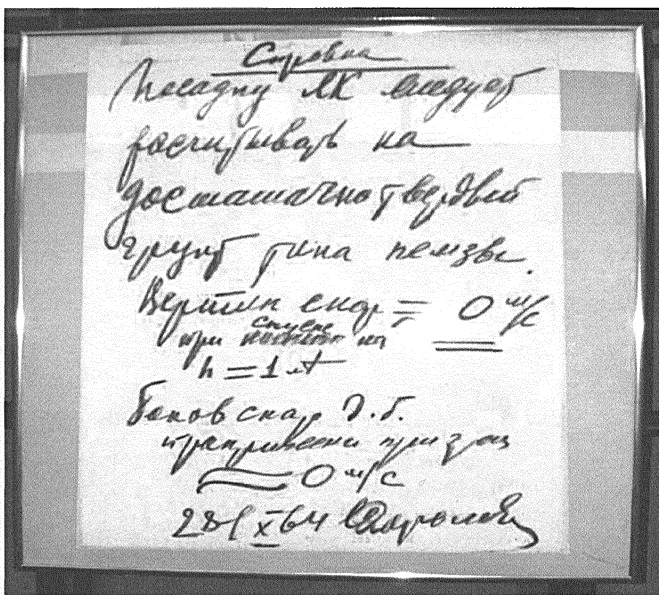 Справка
Посадку ЛК следует
расчитывать на
достаточно твердый
грунт типа пемзы.
Вертик скор = 0 м/с
при спуске на
h = 1 м
Боков скор д.б.
при
≈ 0 м/с
28/X 64 Королев